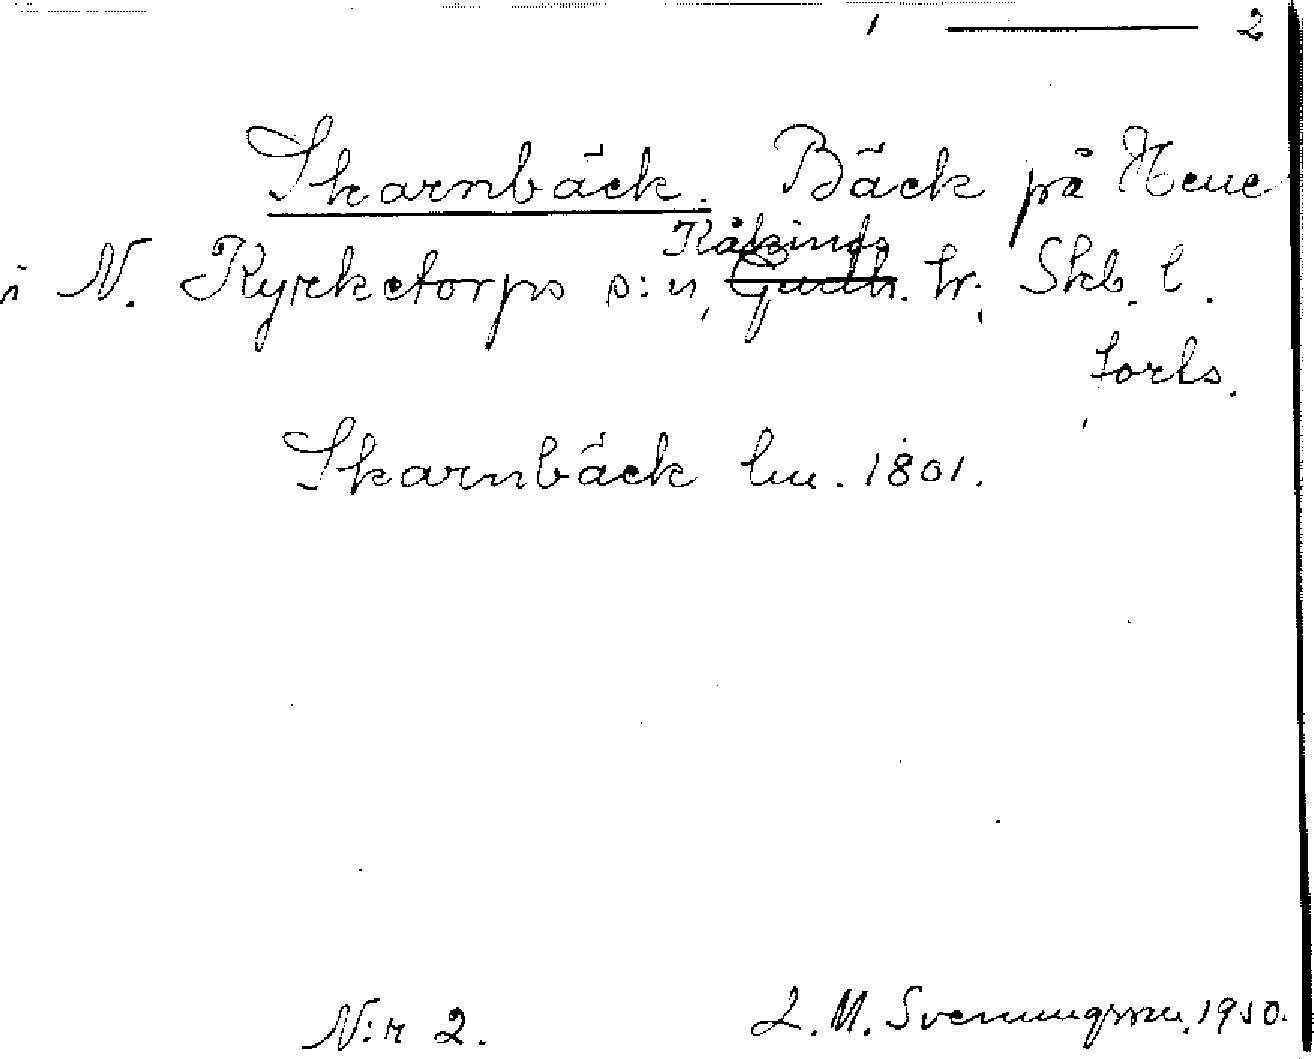 1 — 2
Skarnbäck. Bäck på Hene
i N. Kyrketorps s:n, Kåkinds hr. Skb. l.
forts.
Skarnbäck lm. 1801.
N:r 2.
L. M. Svenungsson, 1950.